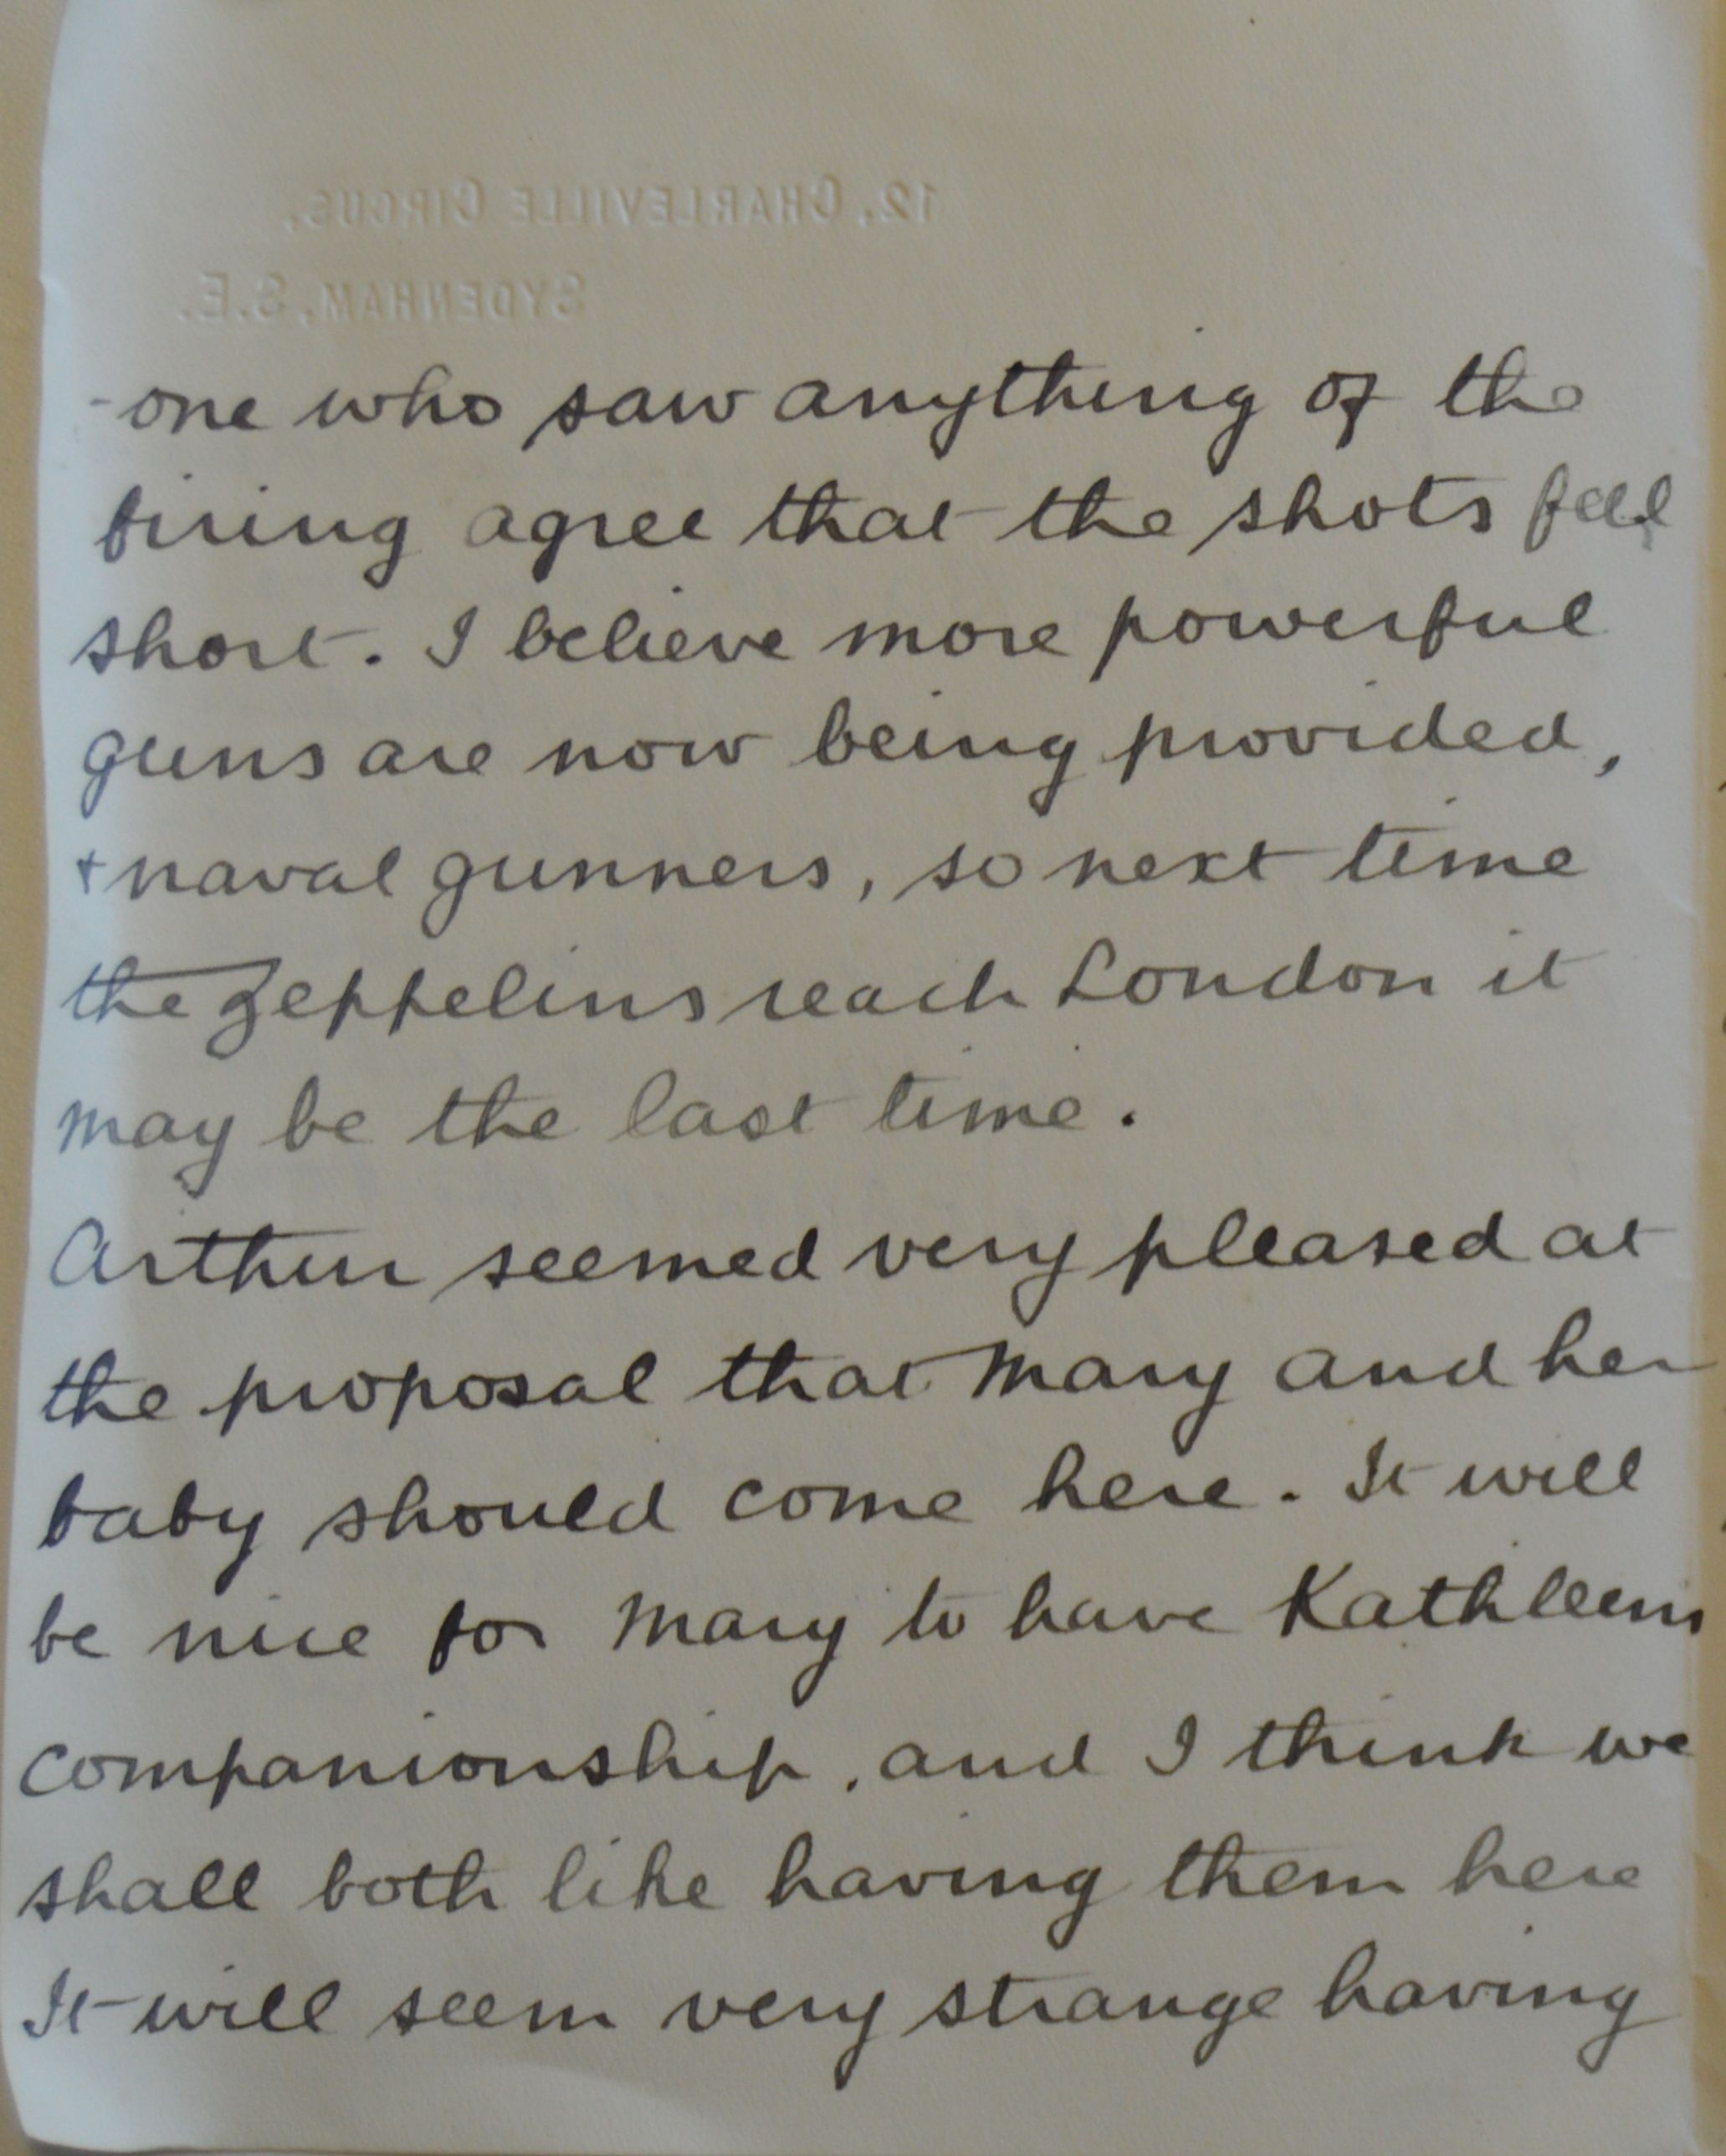 12, CHARLEVILLE CIRCUS,
SYDENHAM, S.E.
-one who saw anything of the
firing agree that the shots fell
short. I believe more powerful
guns are now being provided,
+ naval gunners, so next time
the Zeppelins reach London it
may be the last time.
Arthur seemed very pleased at
the proposal that Mary and her
baby should come here. It will
be nice for Mary to have Kathleens
companionship, and I think we
shall both like having them here
It will seem very strange having